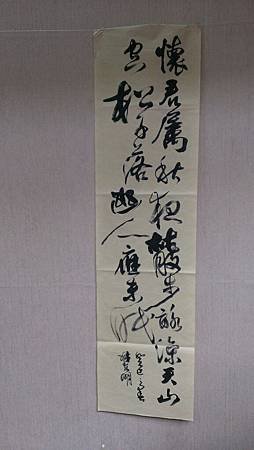 懷君属秋夜散步詠涼天山
空松子落幽人應未眠
癸巳
明